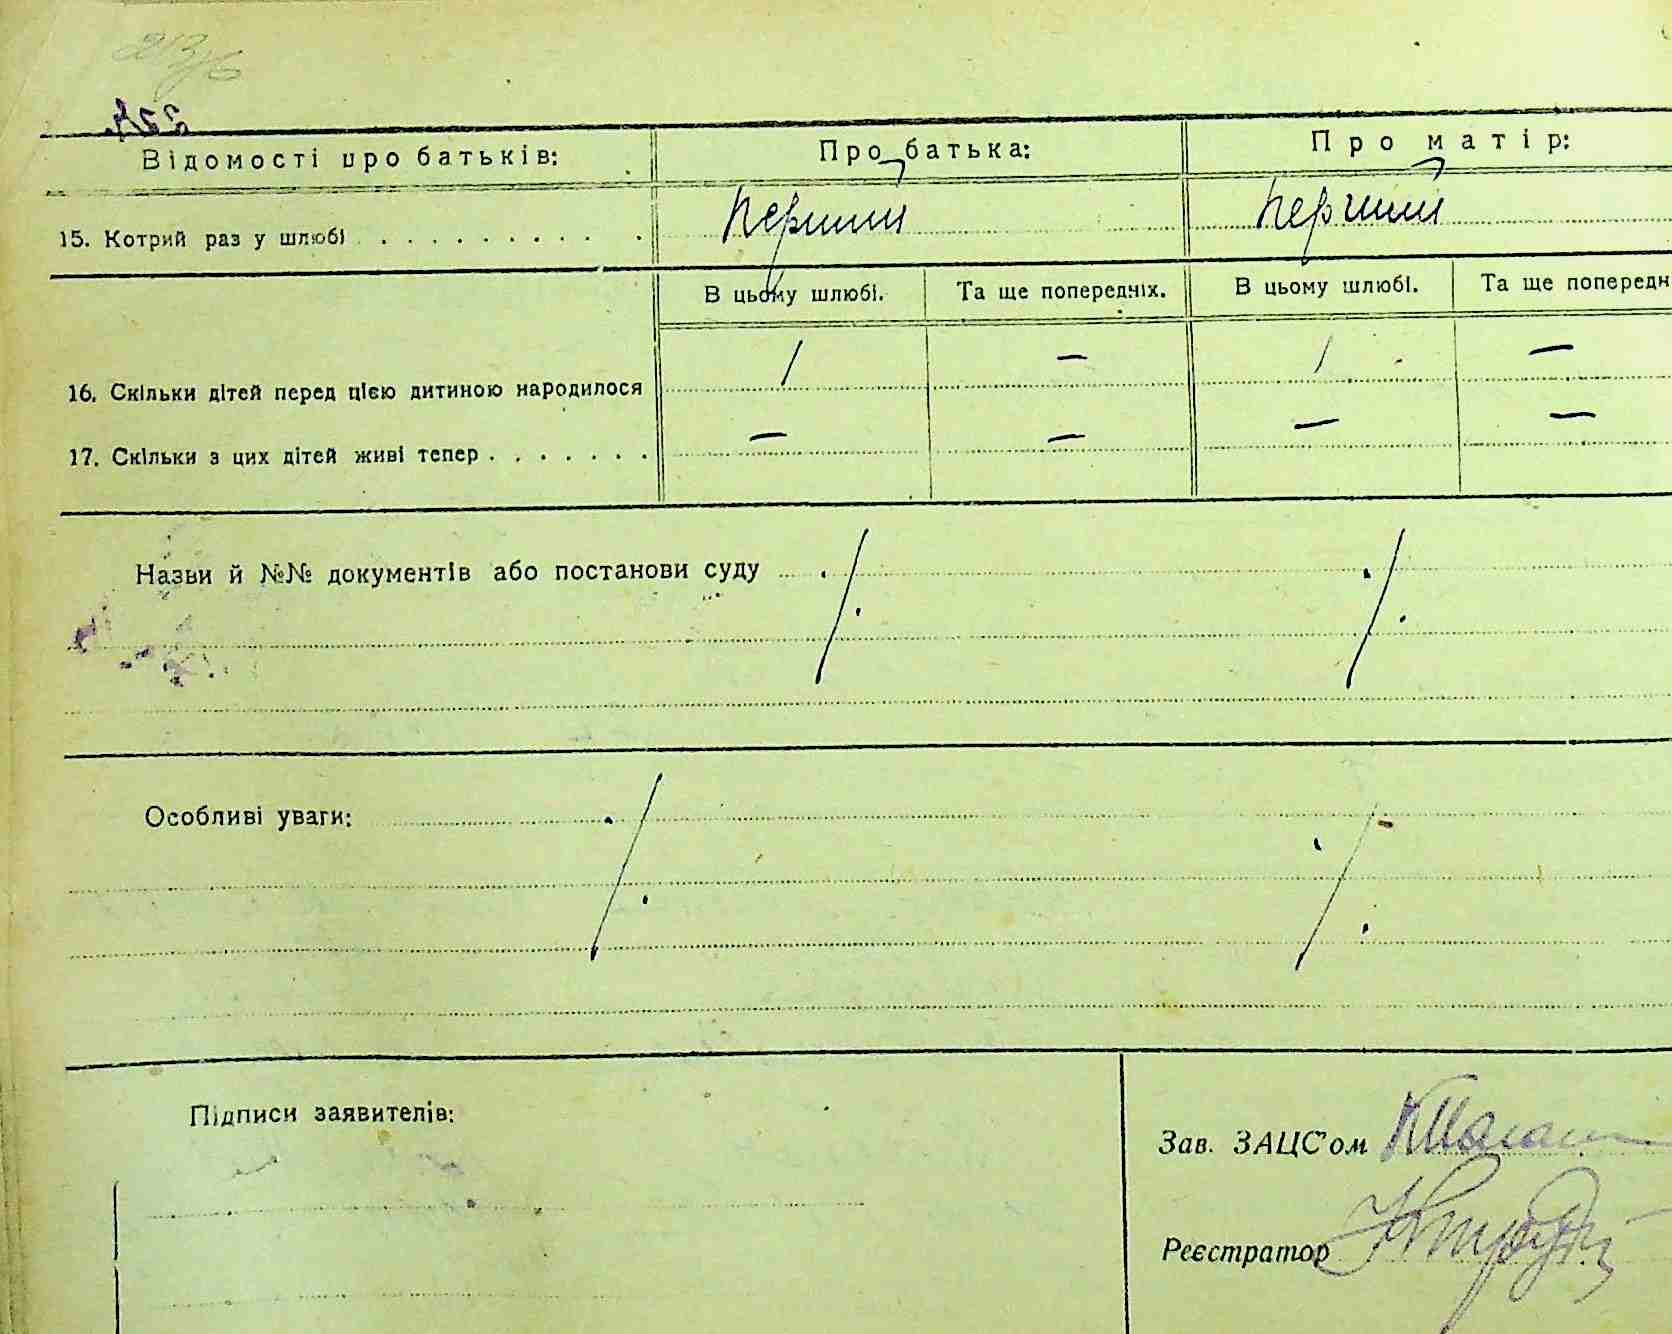 213/6
Відомості про батьків: Про батька: Про матір:
15. Котрий раз у шлюбі . . . . . . . . . . . перший перший
В цьому шлюбі. Та ще попередніх. В цьому шлюбі. Та ще попередн
16. Скільки дітей перед цією дитиною народилося / — / —
17. Скільки з цих дітей живі тепер . . . . . . . — — — —
Назви й №№ документів або постанови суду ./. ./.
Особливі уваги: ./. ./.
Підписи заявителів:
Зав. ЗАЦС'ом
Реєстратор